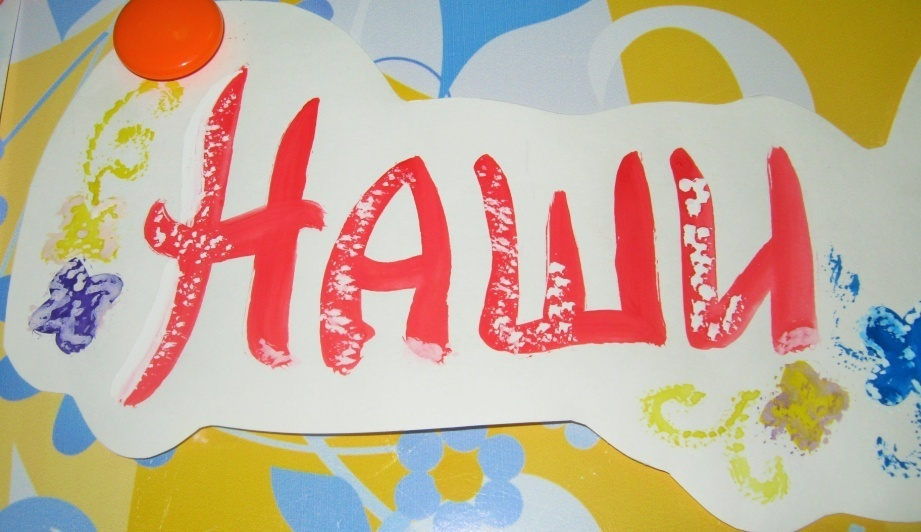 Наши